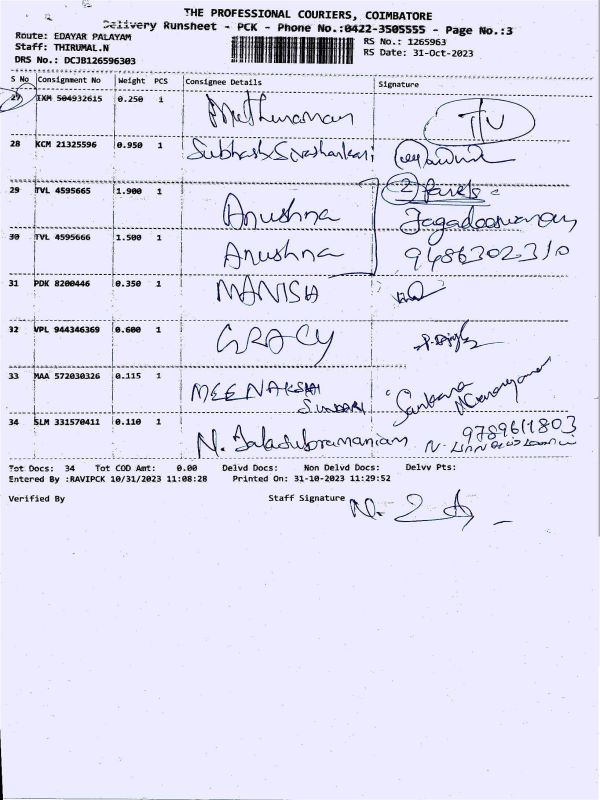 THE PROFESSIONAL COURIERS, COIMBATORE
Delivery Runsheet - PCK - Phone No.:0422-3505555 - Page No.:3
Route: EDAYAR PALAYAM
RS No.: 1265963
Staff: THIRUMAL.N
RS Date: 31-Oct-2023
DRS No.: DCJB126596303
S No Consignment No Weight PCS Consignee Details Signature
27 IXM 504932615 0.250 1
28 KCM 21325596 0.950 1 Subhash Sivashankari
29 TVL 4595665 1.900 1 Anushna 2 Jagadeeswaran
30 TVL 4595666 1.500 1 Anushna 9486302310
31 PDK 8200446 0.350 1 MANISH
32 VPL 944346369 0.600 1 GRACY
33 MAA 572030326 0.115 1 MEENAKSHI SUNDARI Sankara
34 SLM 331570411 0.110 1 N. Balasubramanian 9789611803
Tot Docs: 34 Tot COD Amt: 0.00 Delvd Docs: Non Delvd Docs: Delvv Pts:
Entered By :RAVIPCK 10/31/2023 11:08:28 Printed On: 31-10-2023 11:29:52
Verified By Staff Signature